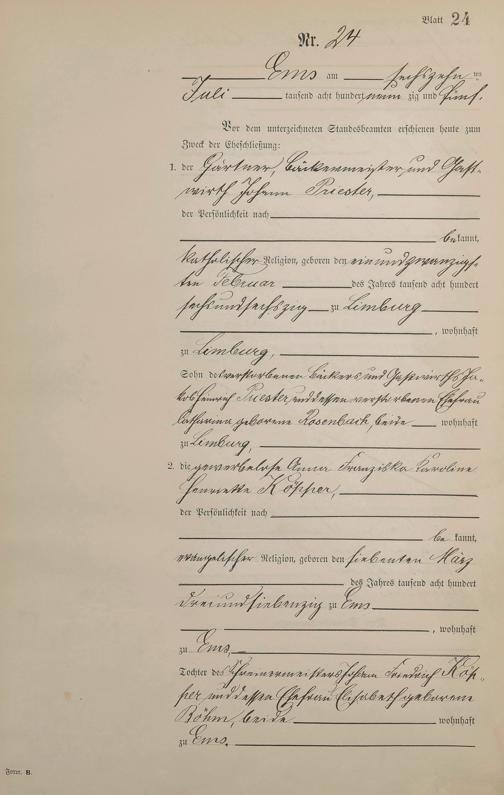 Blatt 24
Nr. 24
Ems am sechszehn ten
Juli tausend acht hundert neun zig und fünf.
Vor dem unterzeichneten Standesbeamten erschienen heute zum
Zweck der Eheschließung:
1. der Gärtner, Bäckermeister und Gast-
wirth Johann Priester,
der Persönlichkeit nach
be kannt,
katholischer Religion, geboren den einundzwanzigs-
ten Februar des Jahres tausend acht hundert
sechsundsechszig zu Limburg
, wohnhaft
zu Limburg,
Sohn des verstorbenen Bäckers und Gastwirths Ja-
kob Heinrich Priester, und dessen verstorbenen Ehefrau
Catharina geborene Rosenbach, beide wohnhaft
zu Limburg,
2. die gewerbelose Anna Franziska Karoline
Henriette Köpper,
der Persönlichkeit nach
be kannt,
evangelischer Religion, geboren den siebenten März
des Jahres tausend acht hundert
dreiundsiebenzig zu Ems
, wohnhaft
zu Ems,
Tochter des Schreinermeisters Johann Friedrich Köp-
per, und dessen Ehefrau Elisabeth geborene
Böhm, beide wohnhaft
zu Ems.
Form. 8.